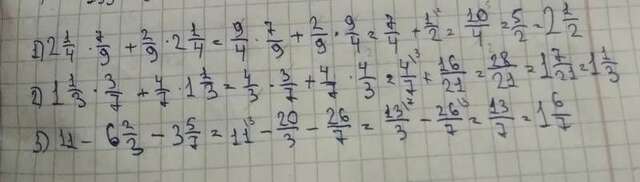 1) 2 1/4 · 7/9 + 2/9 · 2 1/4 = 9/4 · 7/9 + 2/9 · 9/4 = 7/4 + 1/2 ² = 10/4 = 5/2 = 2 1/2
2) 1 1/3 · 3/7 + 4/7 · 1 1/3 = 4/3 · 3/7 + 4/7 · 4/3 = 4/7 ³ + 16/21 = 28/21 = 1 7/21 = 1 1/3
3) 11 - 6 2/3 - 3 5/7 = 11 ³ - 20/3 - 26/7 = 13/3 ⁷ - 26/7 ³ = 13/7 = 1 6/7